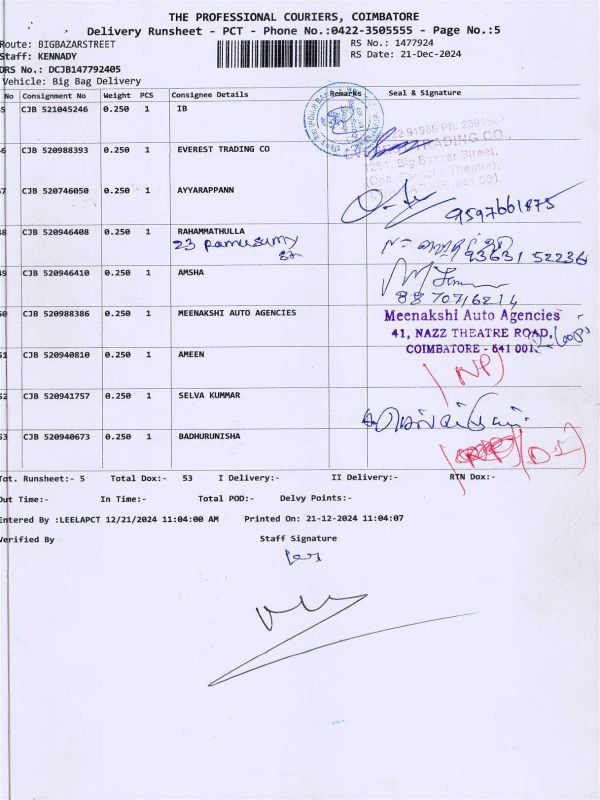 THE PROFESSIONAL COURIERS, COIMBATORE
Delivery Runsheet - PCT - Phone No.:0422-3505555 - Page No.:5
Route: BIGBAZARSTREET RS No.: 1477924
Staff: KENNADY RS Date: 21-Dec-2024
DRS No.: DCJB147792405
Vehicle: Big Bag Delivery
No Consignment No Weight PCS Consignee Details Remarks Seal & Signature
5 CJB 521045246 0.250 1 IB
TRADING CO.,
6 CJB 520988393 0.250 1 EVEREST TRADING CO
251, Big Bazaar Street,
641 001
7 CJB 520746050 0.250 1 AYYARAPPANN
9597661875
8 CJB 520946408 0.250 1 RAHAMMATHULLA
23 Ramusamy
93631 52236
49 CJB 520946410 0.250 1 AMSHA
8870716214
50 CJB 520988386 0.250 1 MEENAKSHI AUTO AGENCIES
Meenakshi Auto Agencies
41, NAZZ THEATRE ROAD,
COIMBATORE - 641 001.
51 CJB 520940810 0.250 1 AMEEN
NP
52 CJB 520941757 0.250 1 SELVA KUMMAR
53 CJB 520940673 0.250 1 BADHURUNISHA
Tot. Runsheet:- 5 Total Dox:- 53 I Delivery:- II Delivery:- RTN Dox:-
Out Time:- In Time:- Total POD:- Delvy Points:-
Entered By :LEELAPCT 12/21/2024 11:04:00 AM Printed On: 21-12-2024 11:04:07
Verified By Staff Signature